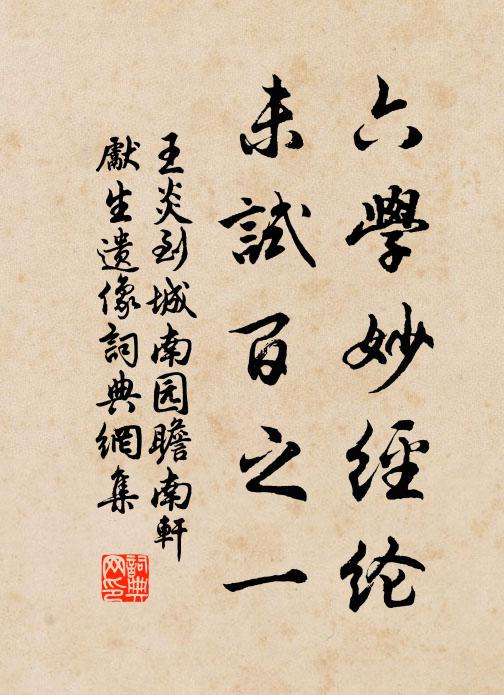 六學妙經纶
未試百之一
王炎到城南园瞻南軒
獻生遗像詞典網集
詞典网印